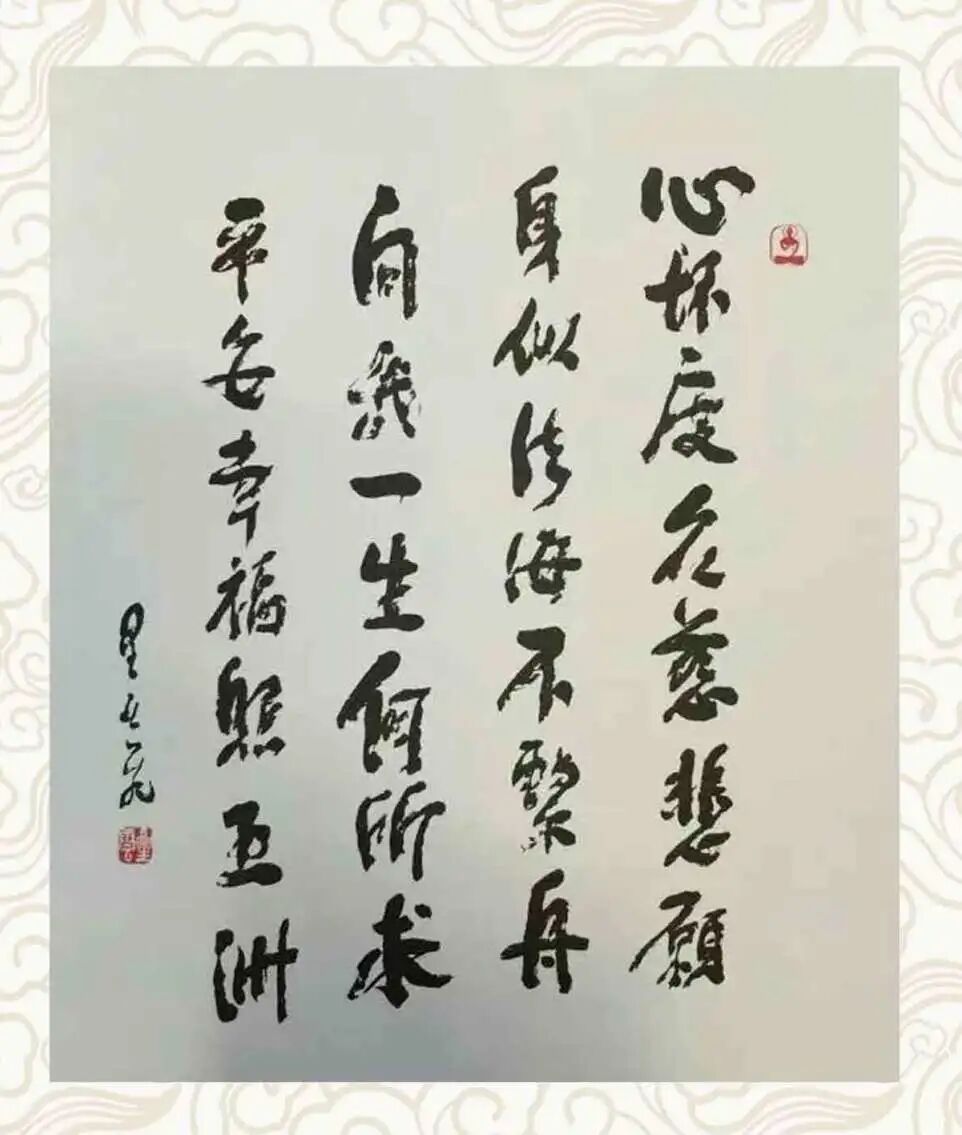 心怀度众慈悲願
身似法海不繫舟
問我一生何所求
平安幸福照五洲
星云